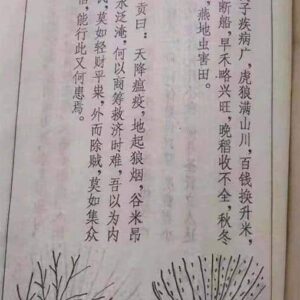 子疾病广,虎狼满山川,百钱换升米,
断船,早禾略兴旺,晚稻收不全,秋冬
,燕地虫害田。
贡曰:天降瘟疫,地起狼烟,谷米昂
水泛淹,何以商筹救济时难,吾以为内
,莫如轻财平粜,外而除贼,莫如集众
,能行此又何患焉。